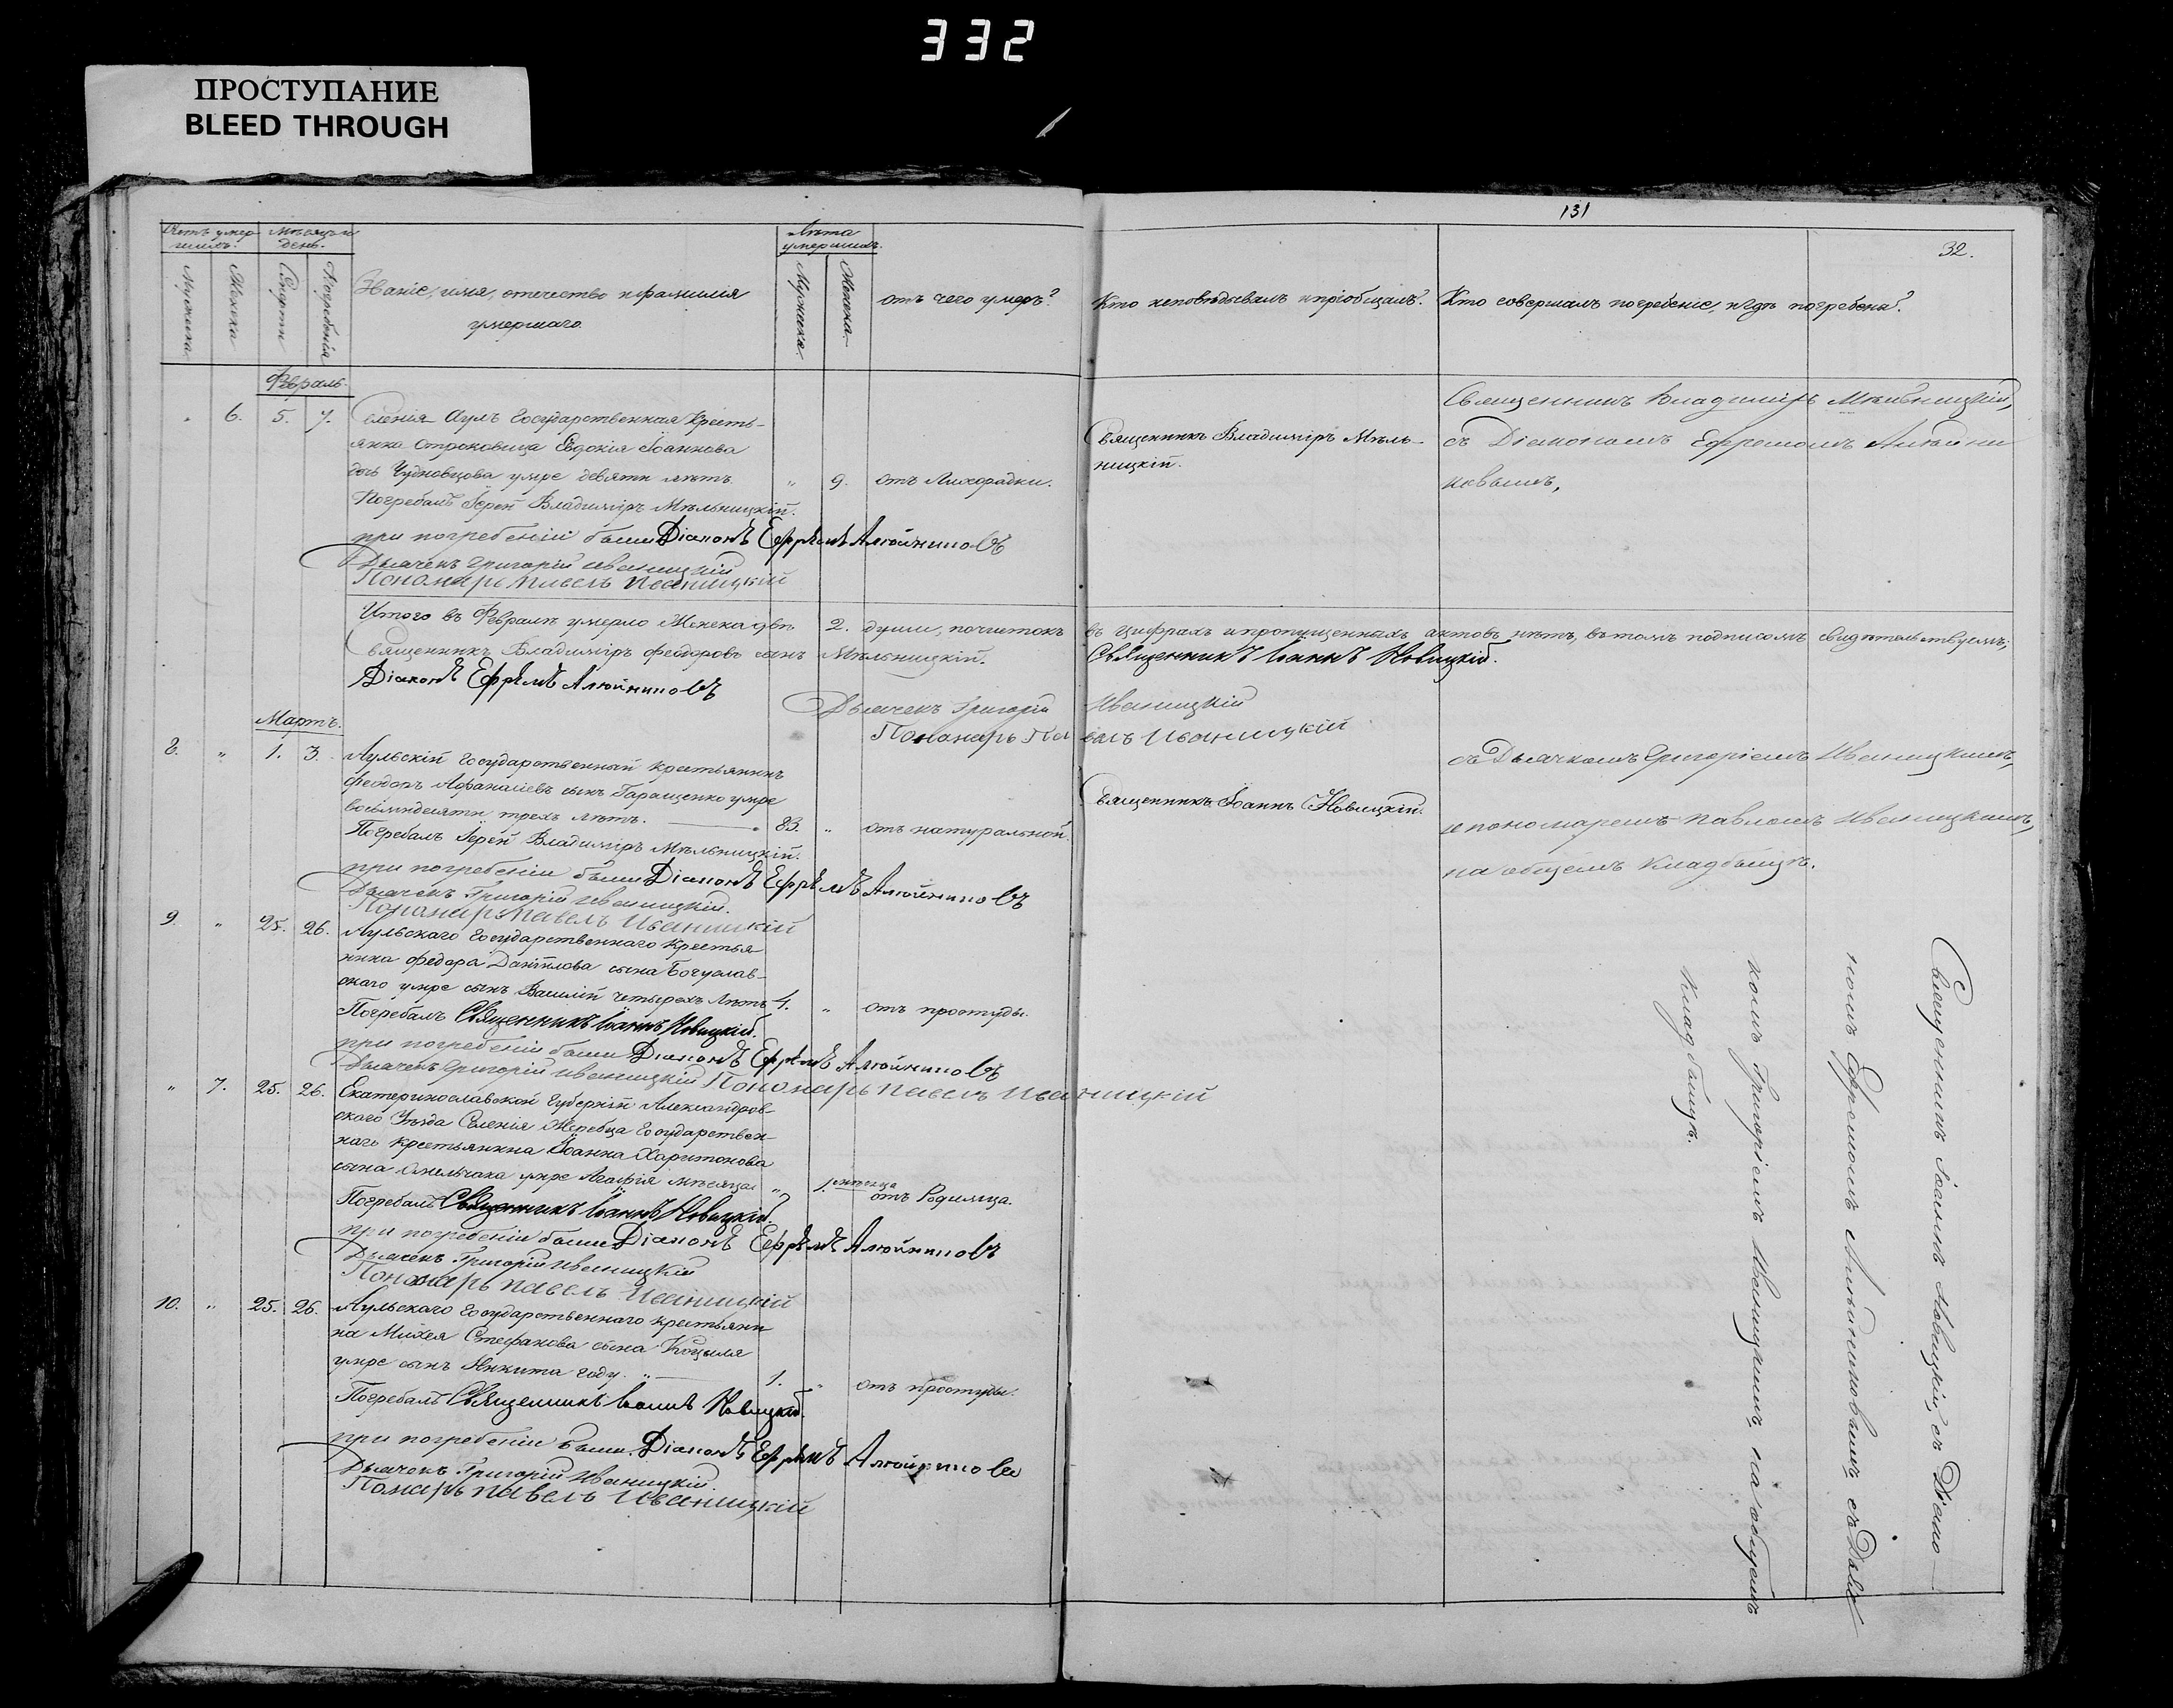 332
ПРОСТУПАНИЕ
BLEED THROUGH
131
32.
Мѣсяцъ и день.
Лѣта умершихъ.
Мужеска
Женска
Смерти
Погребенія
Званіе, имя, отечество и фамилія
умершаго.
Мужеска.
Женска.
отъ чего умеръ?
Кто исповѣдывалъ и пріобщалъ?
Кто совершалъ погребеніе, и гдѣ погребены?
Февраль.
6. 5. 7.
Селенія Аулъ Государственная Кресть-
янка Отроковица Евдокія Іоаннова
дочь Чудновцова умре девяти лѣтъ. „ 9. отъ Лихорадки.
Погребалъ Іерей Владиміръ Мѣльницкій.
при погребеніи были Діаконъ Ефремъ
Дьячекъ Григорій Иваницкій
Пономарь Павелъ Иваницкій
Священникъ Владиміръ Мѣль-
ницкій.
Священникъ Владиміръ Мѣльницкій,
съ Діакономъ Ефремомъ
Итого въ Февралѣ умерло Женска двѣ 2. души, почистокъ въ цифрахъ и пропущенныхъ актовъ нѣтъ, въ томъ подписомъ свидѣтельствуемъ;
Священникъ Владиміръ Феодоровъ сынъ Мѣльницкій.
Священникъ Іоаннъ Новицкій.
Діаконъ Ефремъ
Дьячекъ Григорій Иваницкій
Понамарь Павелъ Иваницкій
Мартъ.
8. „ 1. 3.
Аульскій Государственный крестьянинъ
Феодоръ Афанасіевъ сынъ Таращенко умре
восьмидесяти трехъ лѣтъ. 83. „ отъ натуральной.
Погребалъ Іерей Владиміръ Мѣльницкій.
при погребеніи были Діаконъ Ефремъ
Дьячекъ Григорій Иваницкій.
Понамарь Павелъ Иваницкій
Священникъ Іоаннъ Новицкій.
съ Дьячкомъ Григоріемъ Иваницкимъ,
и пономаремъ Павломъ Иваницкимъ,
на общемъ кладбищѣ.
9. „ 25. 26.
Аульскаго Государственнаго Крестья
нина Федора Даніилова сына Богуслав-
скаго умре сынъ Василій четырехъ лѣтъ 4. „ отъ простуды.
Погребалъ Священникъ Іоаннъ Новицкій.
при погребеніи были Діаконъ Ефремъ
Дьячекъ Григорій Иваницкій Пономарь Павелъ Иваницкій
„ 7. 25. 26.
Екатеринославской Губерніи Александров-
скаго Уѣзда Селенія Жеребца Государствен-
наго крестьянина Іоанна Харитонова
сына Омельчака умре Агафія мѣсяца „ 1. мѣсяца отъ Родимца.
Погребалъ Священникъ Іоаннъ Новицкій.
при погребеніи были Діаконъ Ефремъ
Дьячекъ Григорій Иваницкій
Пономарь Павелъ Иваницкій
10. „ 25. 26.
Аульскаго Государственнаго крестьяни
на Михея Стефанова сына Коцыля
умре сынъ Никита году. 1. „ отъ простуды.
Погребалъ Священникъ Іоаннъ Новицкій.
при погребеніи были Діаконъ Ефремъ
Дьячекъ Григорій Иваницкій.
Понарь Павелъ Иваницкій
Священникъ Іоаннъ Новицкій, съ Діако-
номъ Ефремомъ съ Дьяч
комъ Григоріемъ Иваницкимъ, на общемъ
Кладбищѣ.